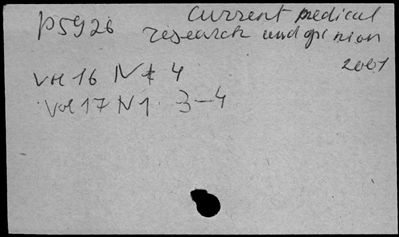 P5926 Current medical
research and opinion
2001
Vol 16 N* 4
Vol 17 N1 3-4